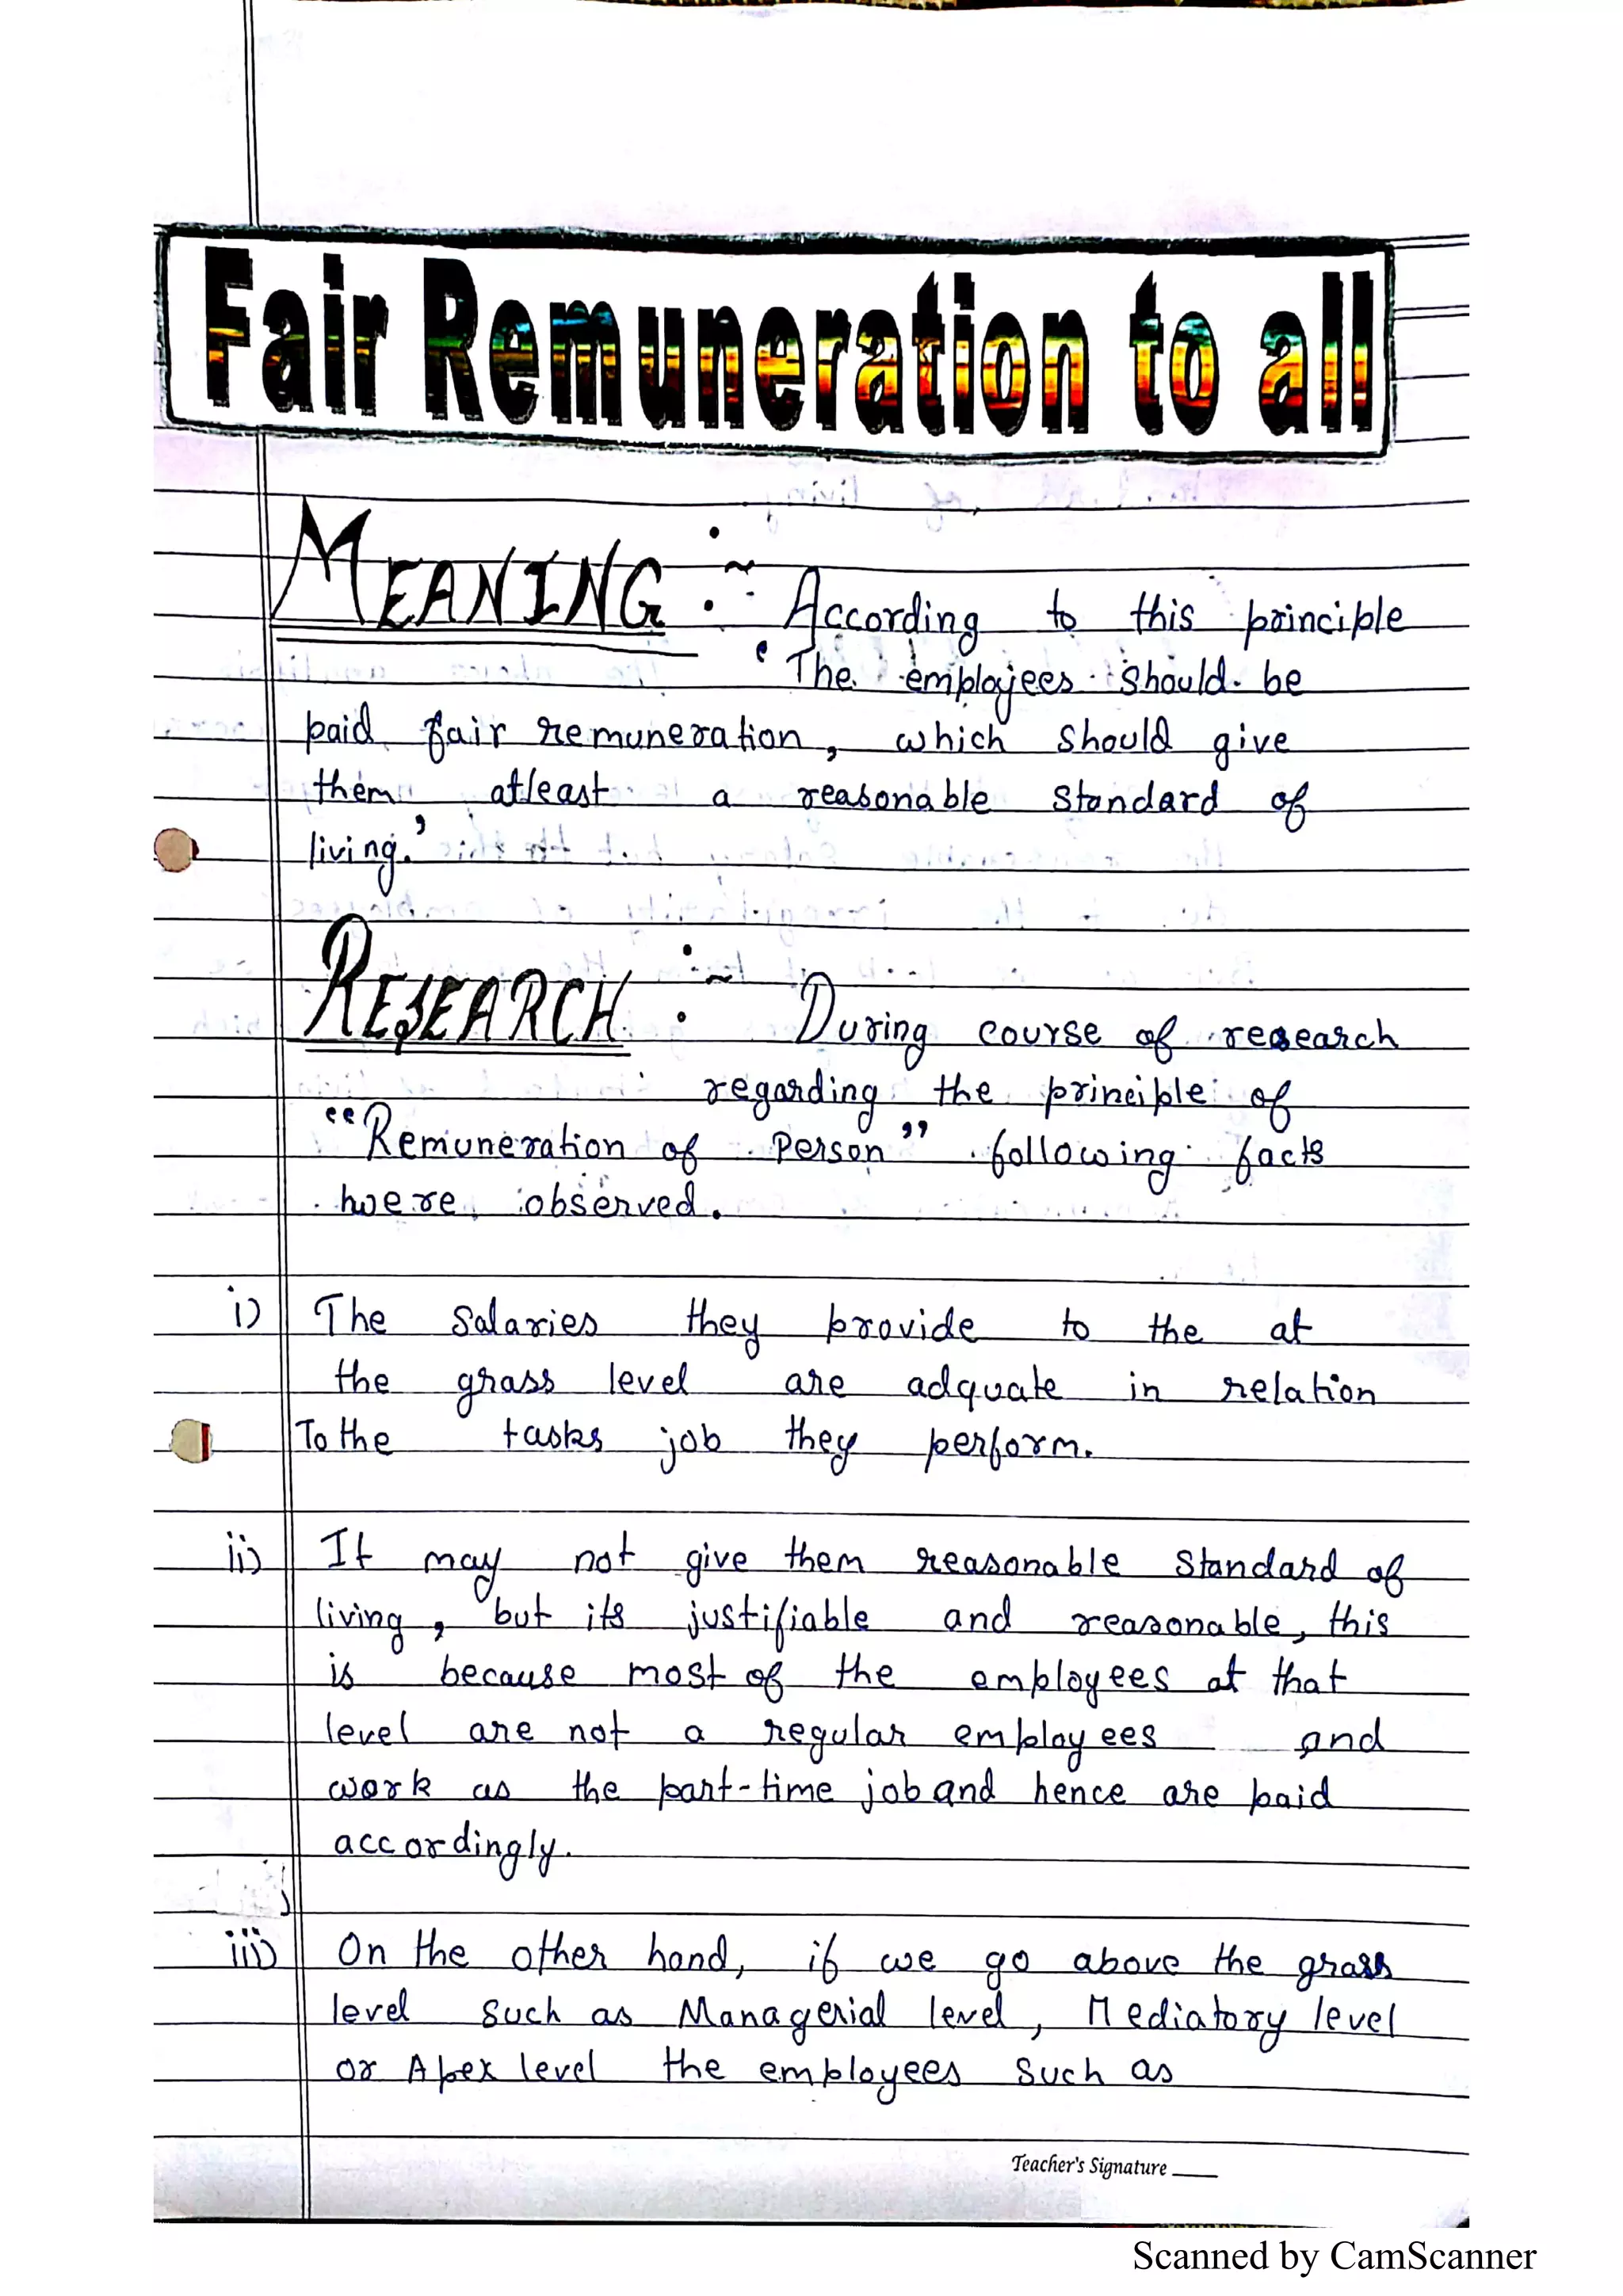 Fair Remuneration to all
MEANING :~ According to this principle
'The employees should be
paid fair remuneration, which should give
them atleast a reasonable standard of
living.'
RESEARCH :~ During course of research
regarding the principle of
"Remuneration of Person" following facts
were observed.
i) The salaries they provide to the at
the grass level are adquate in relation
To the tasks job they perform.
ii) It may not give them reasonable standard of
living, but its justifiable and reasonable, this
is because most of the employees at that
level are not a regular employees and
work as the part-time job and hence are paid
accordingly.
iii) On the other hand, if we go above the grass
level such as Managerial level, Mediatory level
or Apex level the employees such as
Teacher's Signature
Scanned by CamScanner